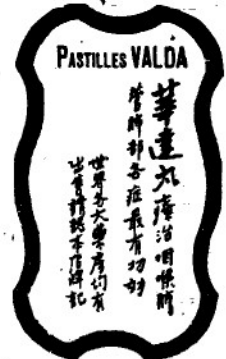 PASTILLES VALDA
華達丸療治咽喉肺
管肺部各症最有功効
世界各大藥房均有
出售請認本店牌記